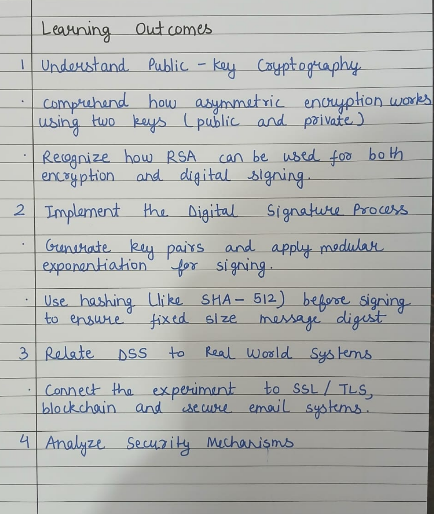 Learning Outcomes
1 Understand Public - Key Cryptography
· comprehend how asymmetric encryption works
using two keys (public and private)
· Recognize how RSA can be used for both
encryption and digital signing.
2 Implement the Digital Signature Process
· Generate key pairs and apply modular
exponentiation for signing.
· Use hashing (like SHA - 512) before signing
to ensure fixed size message digest
3 Relate DSS to Real World Systems
· Connect the experiment to SSL / TLS,
blockchain and secure email systems.
4 Analyze Security Mechanisms